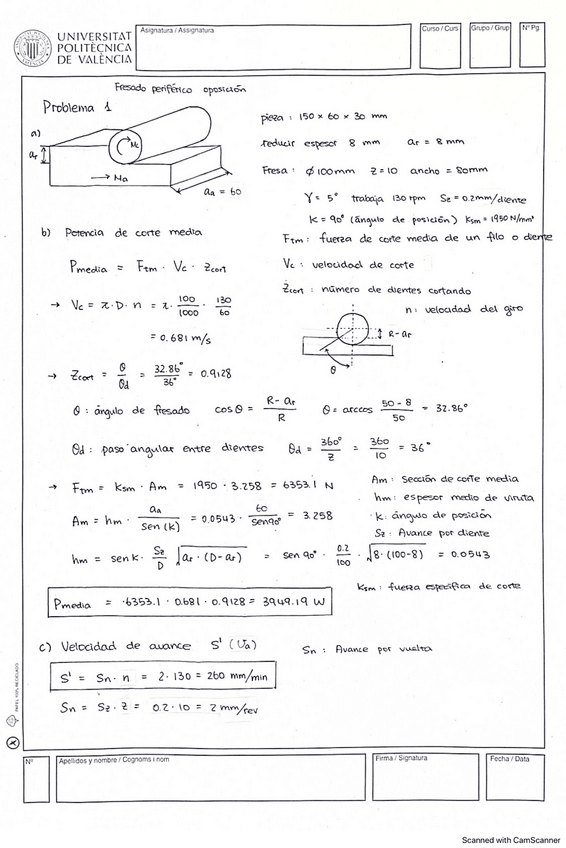 UNIVERSITAT
POLITÈCNICA
DE VALÈNCIA
Asignatura / Assignatura
Curso / Curs
Grupo / Grup
Nº Pg.
Fresado periférico oposición
Problema 1
a)
ar
Mc
Ma
aa = 60
pieza : 150 x 60 x 30 mm
reducir espesor 8 mm ar = 8 mm
Fresa : ϕ 100mm Z = 10 ancho = 80mm
γ = 5° trabaja 130 rpm Sz = 0.2mm/diente
K = 90° (ángulo de posición) Ksm = 1950 N/mm²
b) Potencia de corte media
Pmedia = Ftm · Vc · Zcort
Ftm : fuerza de corte media de un filo o diente
Vc : velocidad de corte
Zcort : número de dientes cortando
n : velocidad del giro
→ Vc = π · D · n = π · 100/1000 · 130/60
= 0.681 m/s
R - ar
θ
→ Zcort = θ/θd = 32.86°/36° = 0.9128
θ : ángulo de fresado cos θ = (R - ar)/R θ = arccos (50 - 8)/50 = 32.86°
θd : paso angular entre dientes θd = 360°/Z = 360/10 = 36°
→ Ftm = Ksm · Am = 1950 · 3.258 = 6353.1 N
Am = hm · aa/sen (k) = 0.0543 · 60/sen90° = 3.258
hm = sen k · Sz/D √(ar · (D - ar)) = sen 90° · 0.2/100 · √(8 · (100 - 8)) = 0.0543
Am : Sección de corte media
hm : espesor medio de viruta
k : ángulo de posición
Sz : Avance por diente
Ksm : fuerza específica de corte
Pmedia = 6353.1 · 0.681 · 0.9128 = 3949.19 W
c) Velocidad de avance S' (Ua)
Sn : Avance por vuelta
S' = Sn · n = 2 · 130 = 260 mm/min
Sn = Sz · Z = 0.2 · 10 = 2 mm/rev
Nº
Apellidos y nombre / Cognoms i nom
Firma / Signatura
Fecha / Data
Scanned with CamScanner